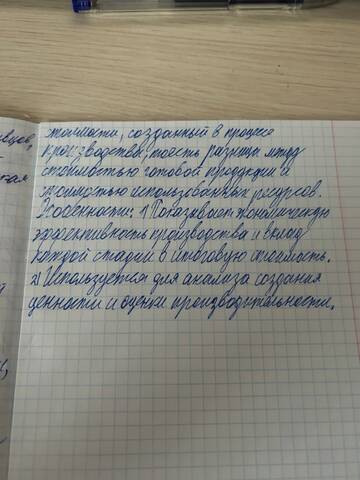 стоимости, созданный в процессе
производства, то есть разница между
стоимостью готовой продукции и
стоимостью использованных ресурсов.
Особенности: 1) Показывает экономическую
эффективность производства и вклад
каждой стадии в итоговую стоимость.
2) Используется для анализа создания
ценности и оценки производительности.